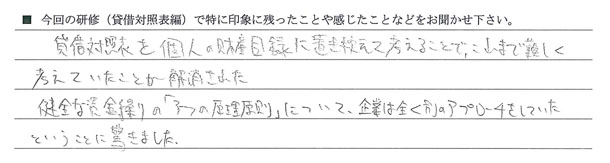 ■ 今回の研修（貸借対照表編）で特に印象に残ったことや感じたことなどをお聞かせ下さい。
貸借対照表を個人の財産目録に置き換えて考えることで、これまで難しく
考えていたことが解消された
健全な資金繰りの「3つの原理原則」について、企業は全く別のアプローチをしていた
ということに驚きました。